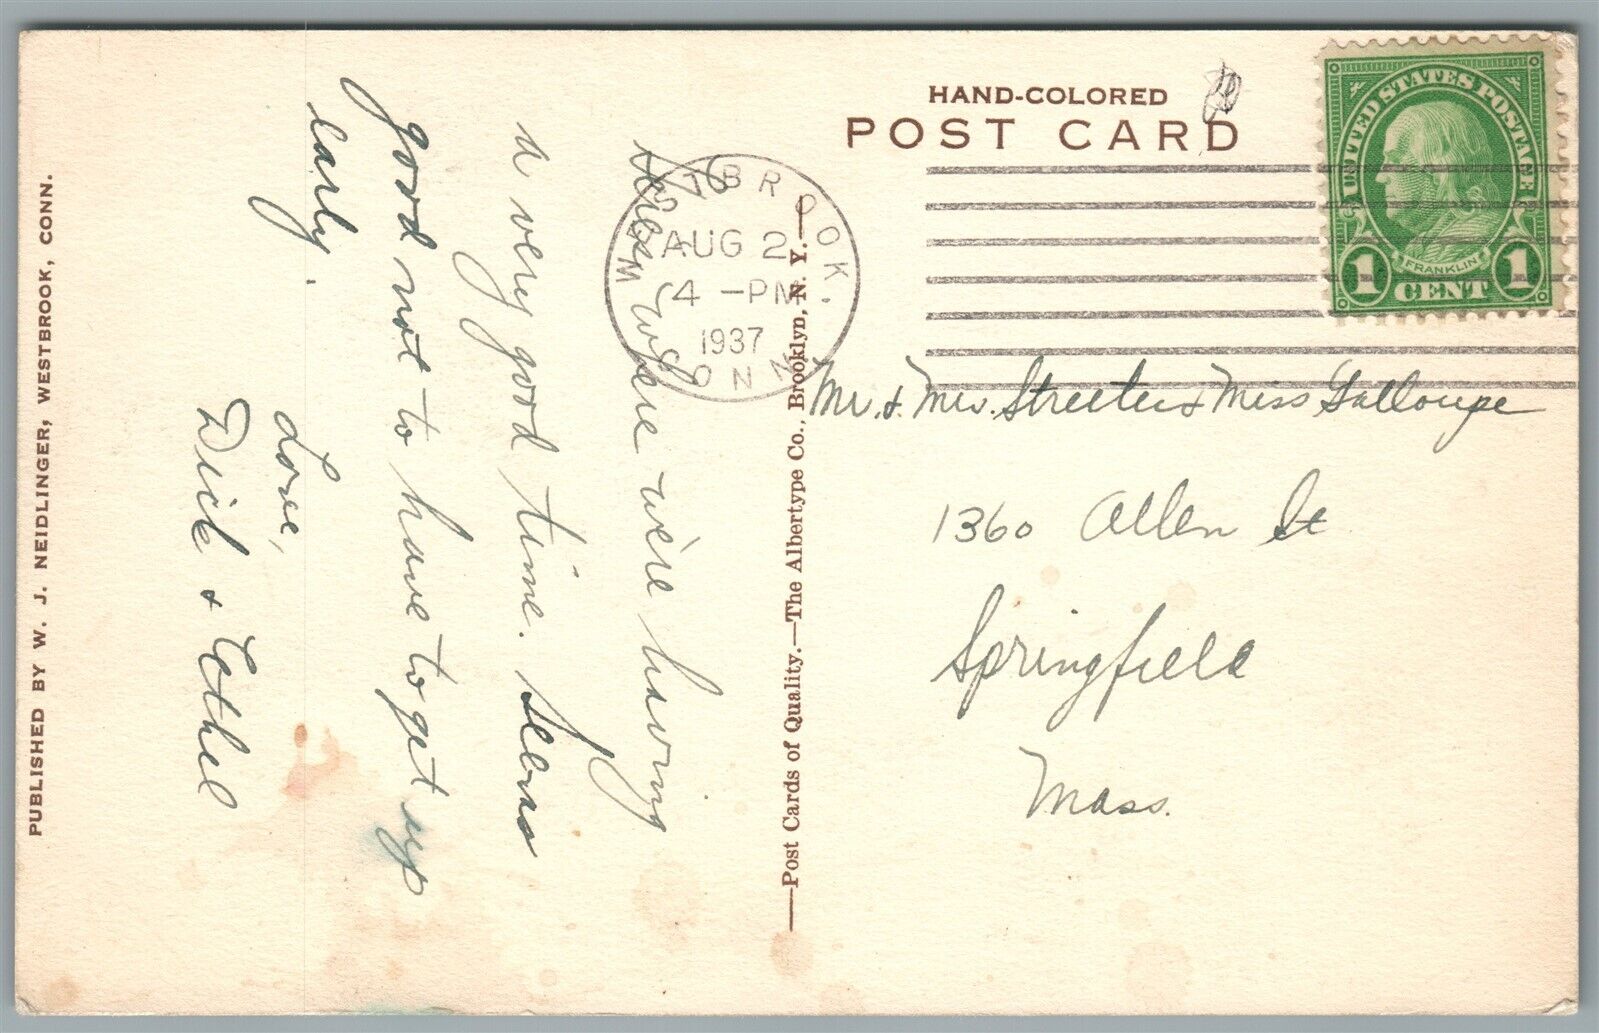 HAND-COLORED
POST CARD
UNITED STATES POSTAGE
FRANKLIN
1 CENT 1
WESTBROOK.
AUG 2
4 -PM
1937
CONN.
Mr. & Mrs. Streeter & Miss Galloupe
1360 Allen St
Springfield
Mass.
where we're having
a very good time. Seems
good not to have to get up
early.
Love,
Dick & Ethel
—Post Cards of Quality.—The Albertype Co., Brooklyn, N. Y.—
PUBLISHED BY W. J. NEIDLINGER, WESTBROOK, CONN.